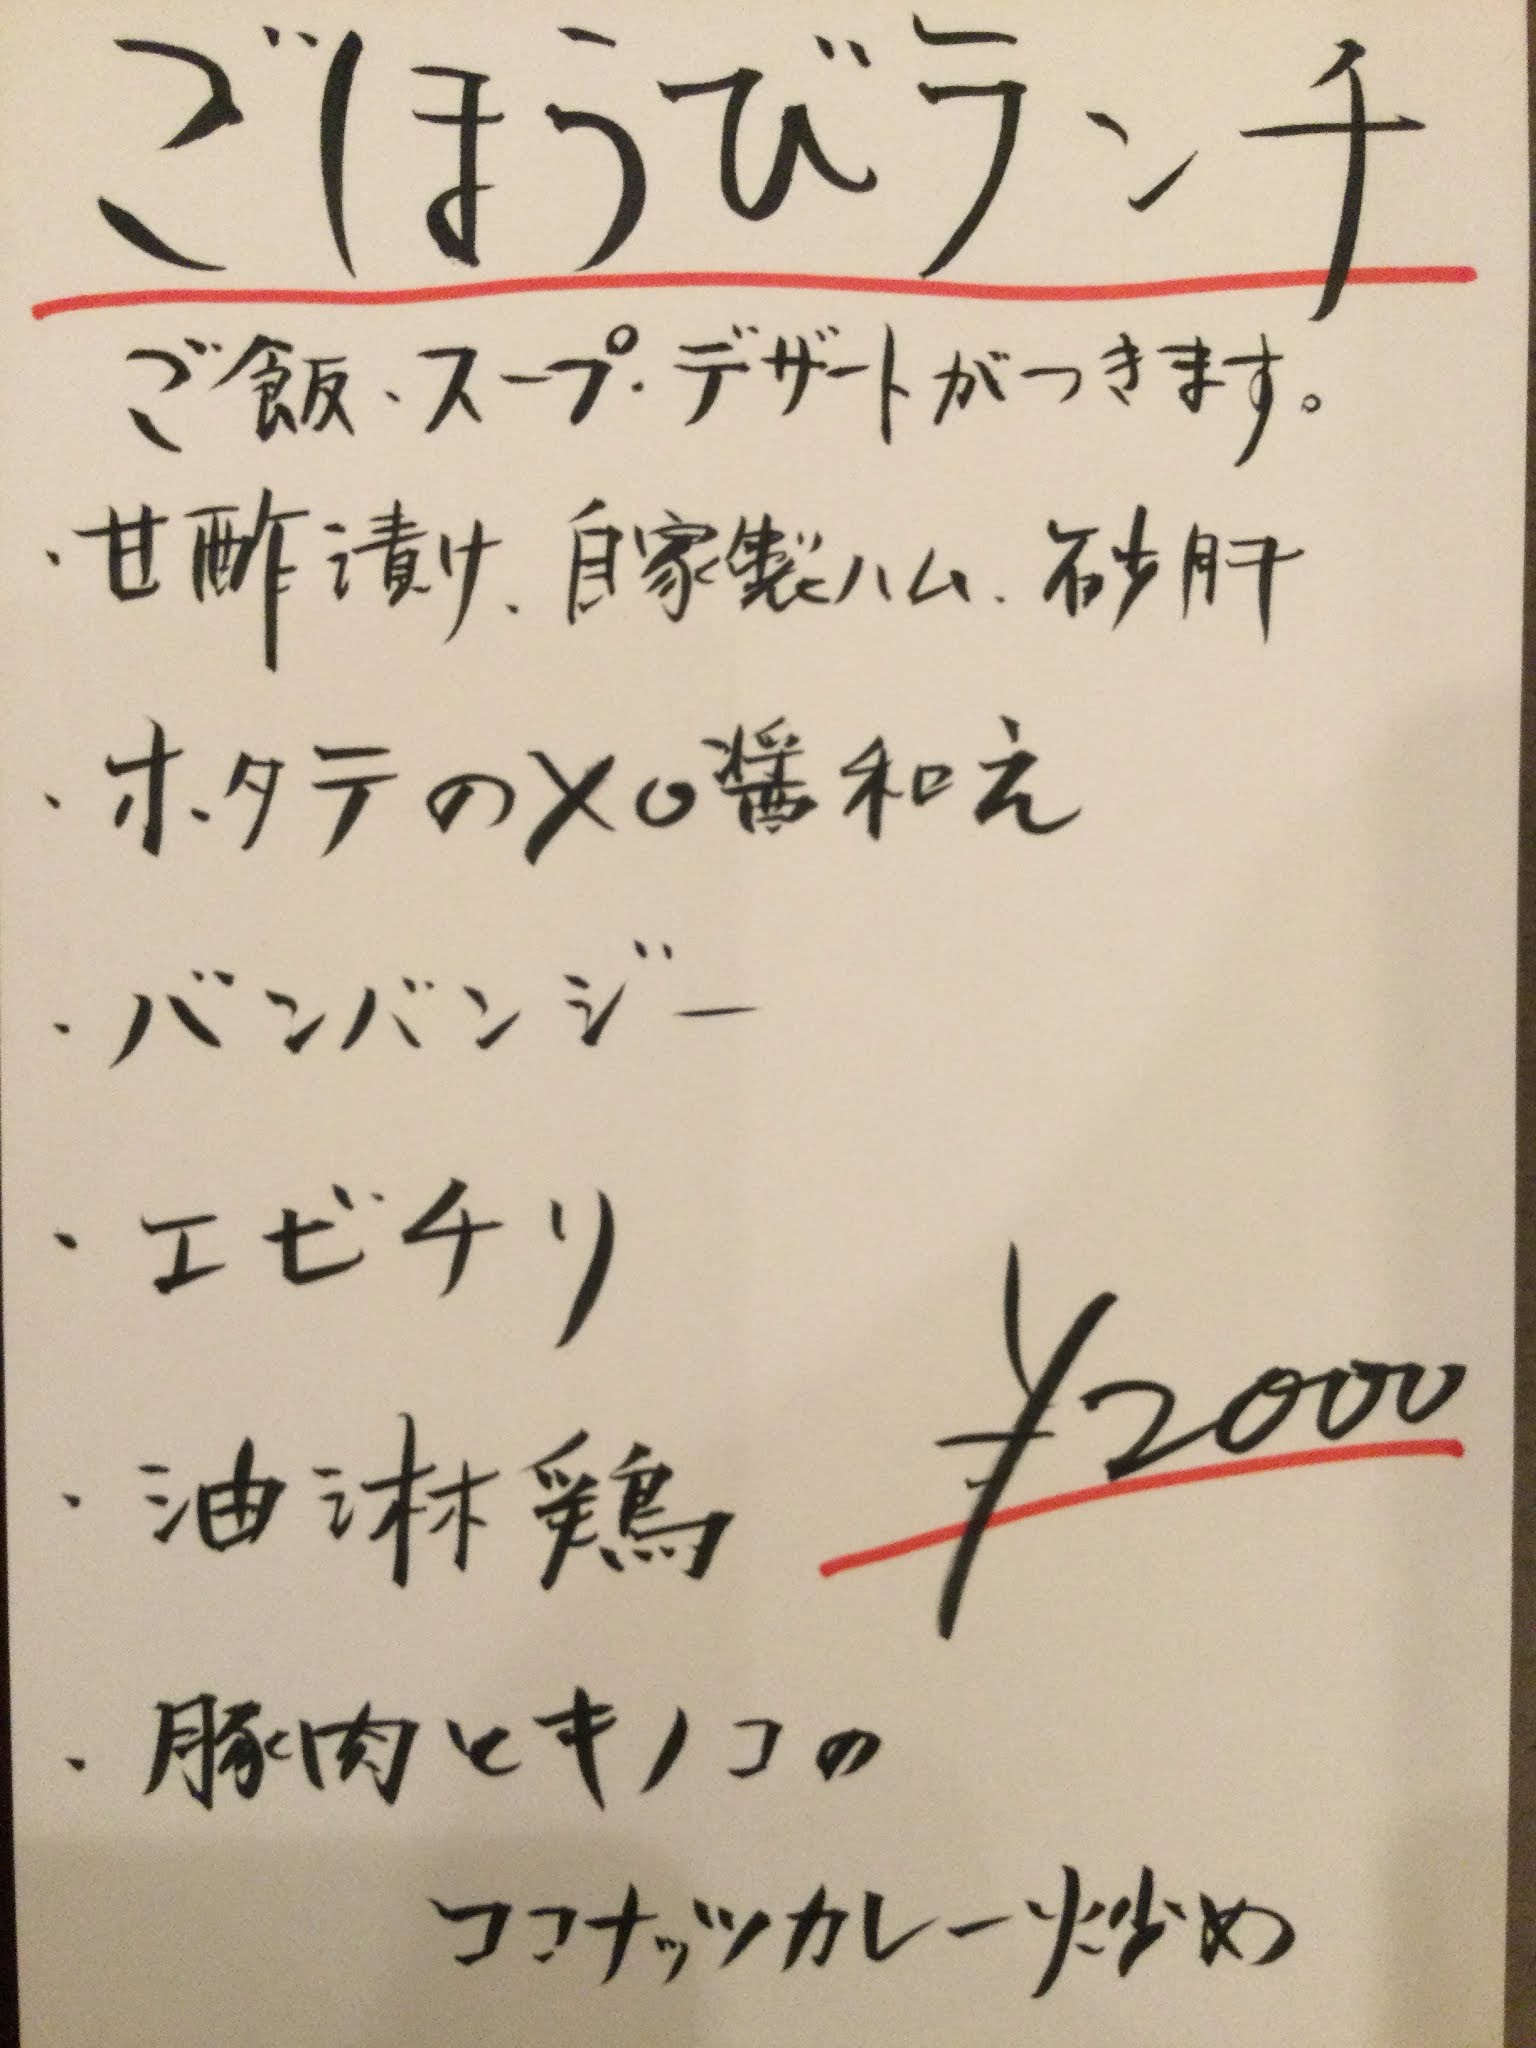 ごほうびランチ
ご飯、スープ・デザートがつきます。
・甘酢漬け、自家製ハム、砂肝
・ホタテのXO醤和え
・バンバンジー
・エビチリ
¥2000
・油淋鶏
・豚肉とキノコの
ココナッツカレー炒め